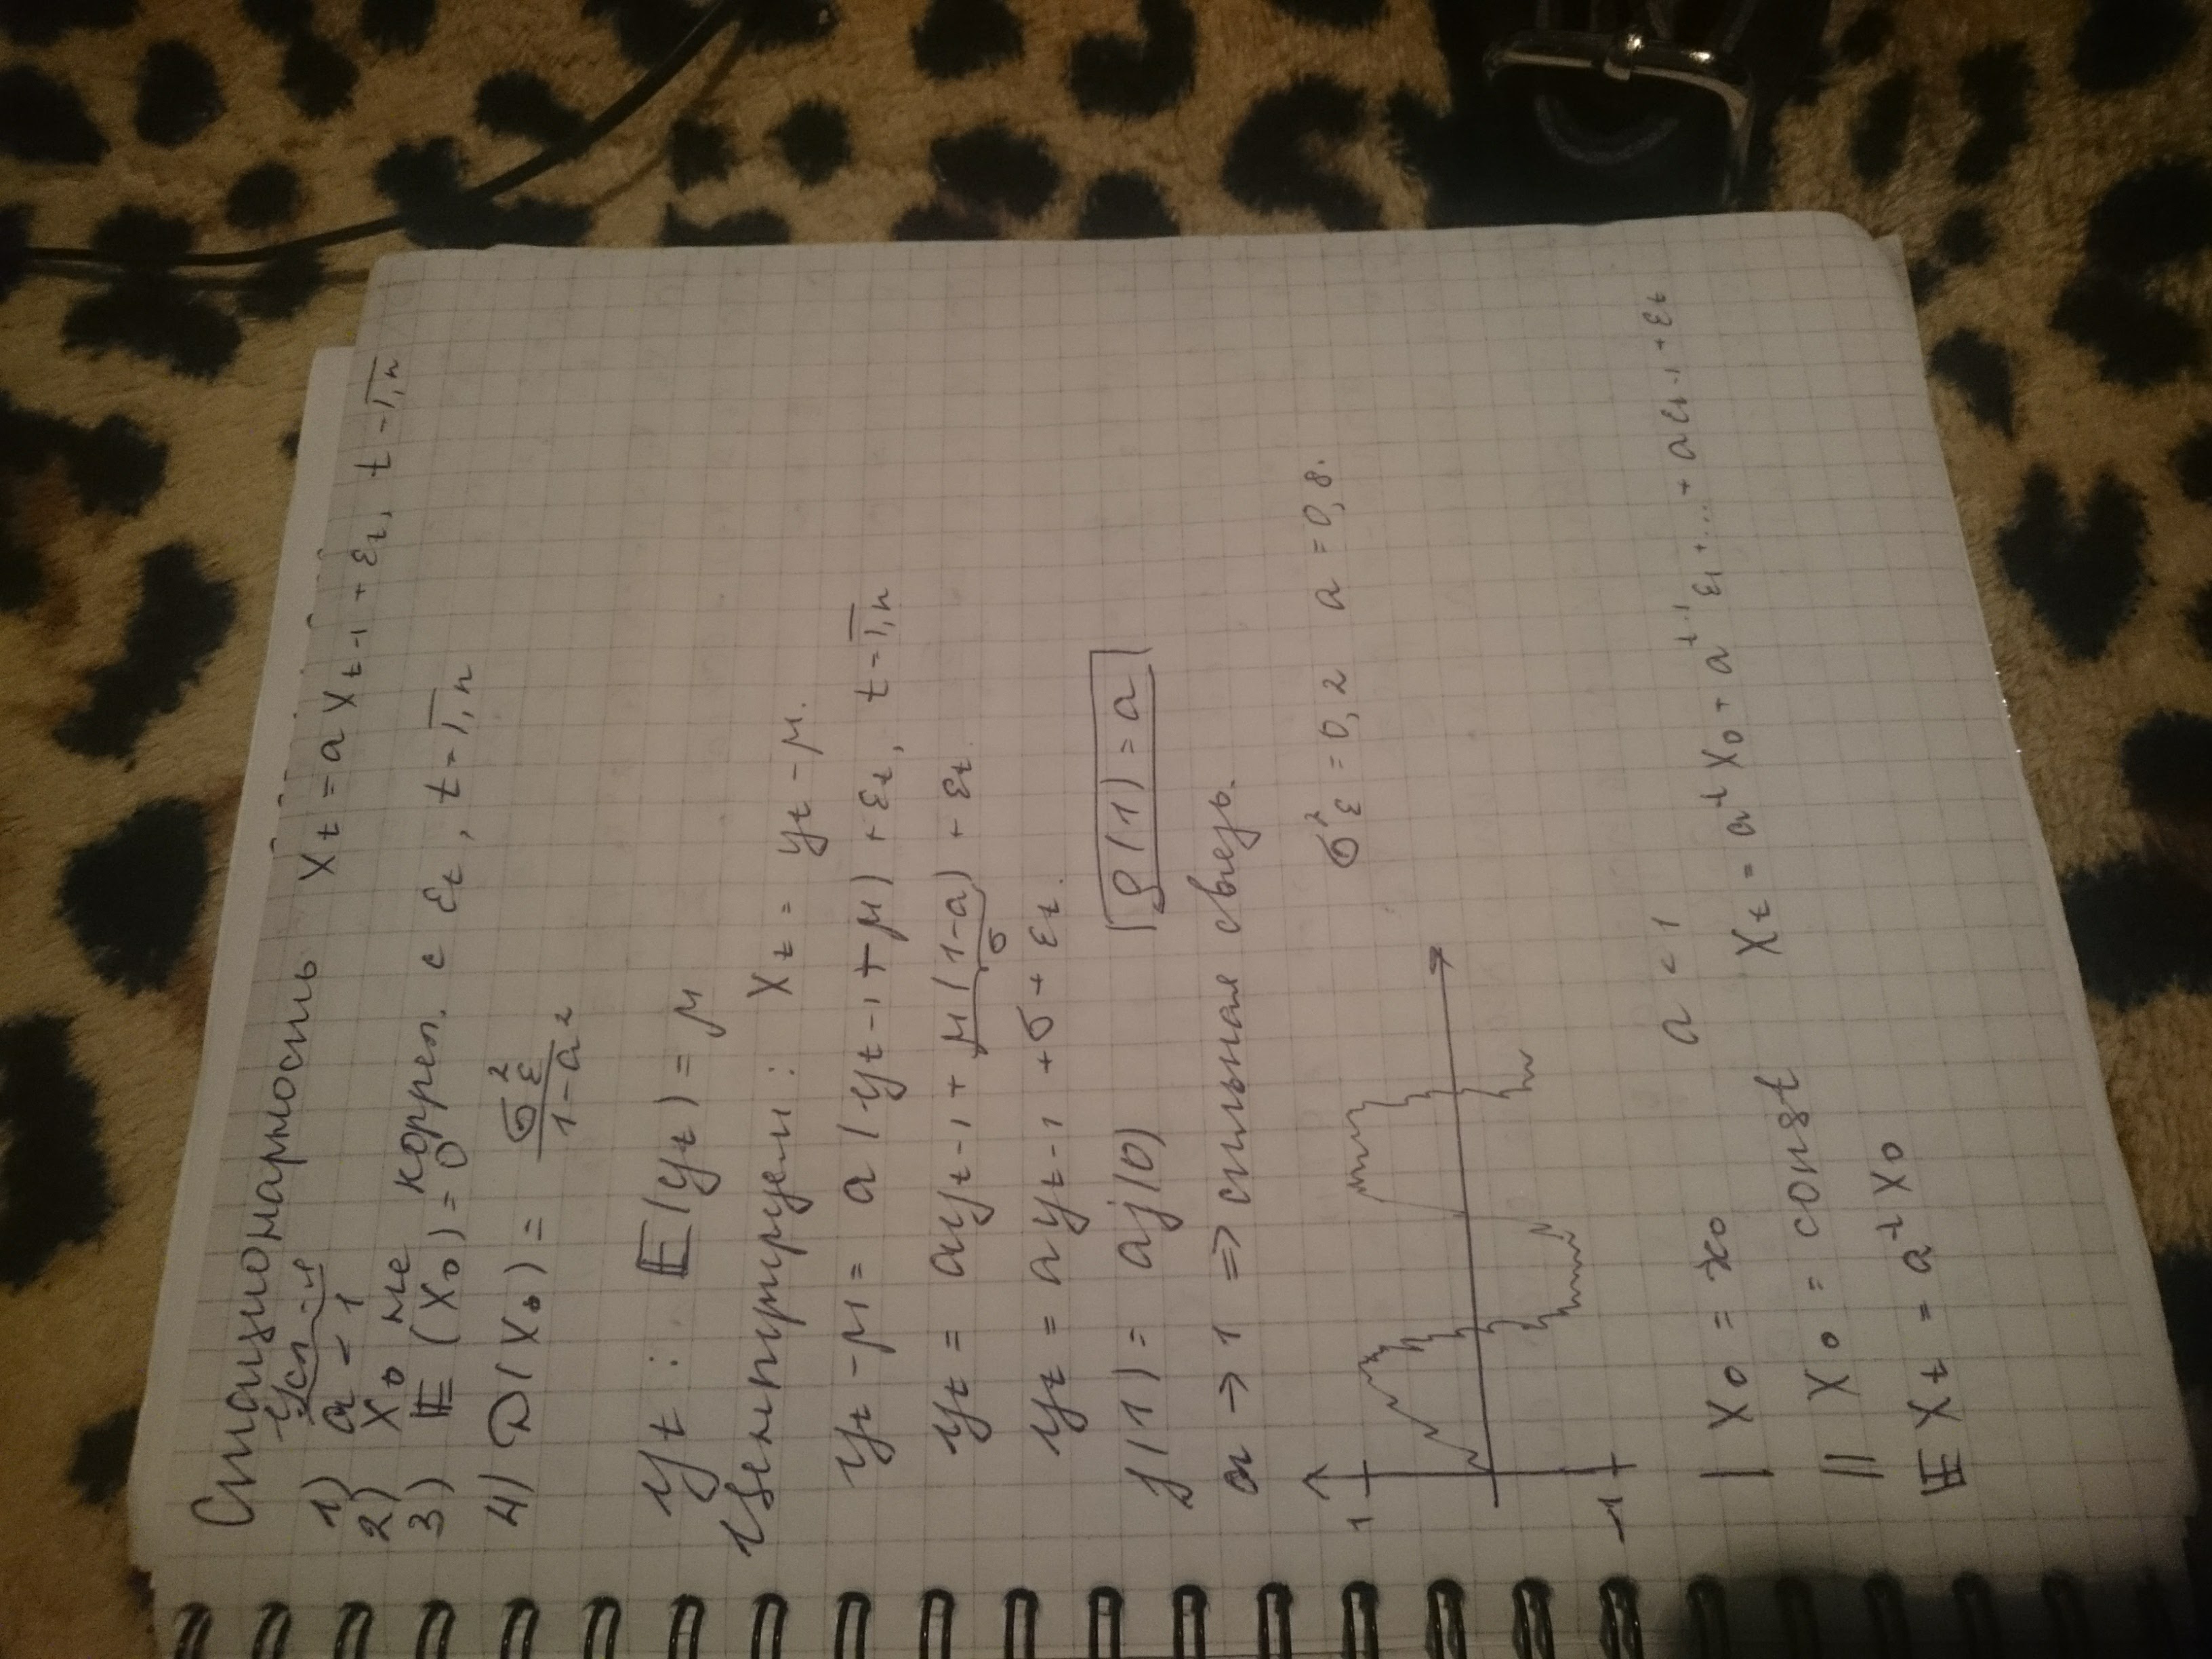 Стационарность X_t = a X_{t-1} + ε_t, t = \overline{1,n}
Усл-я
1) a < 1
2) X_0 не коррел. с ε_t, t = \overline{1,n}
3) E(X_0) = 0
4) D(X_0) = \frac{σ_ε^2}{1-a^2}
y_t : E(y_t) = μ
Центрируем: X_t = y_t - μ.
y_t - μ = a(y_{t-1} + μ) + ε_t, t = \overline{1,n}
y_t = a y_{t-1} + μ(1-a) + ε_t
σ
y_t = a y_{t-1} + σ + ε_t.
γ(1) = aγ(0) ρ(1) = a
a → 1 ⇒ сильная связь.
1
σ_ε^2 = 0,2 a = 0,8.
-1
a < 1
| X_0 = x_0 X_t = a^t X_0 + a^{t-1} ε_1 + ... + a ε_{t-1} + ε_t
|| X_0 = const
E X_t = a^t X_0